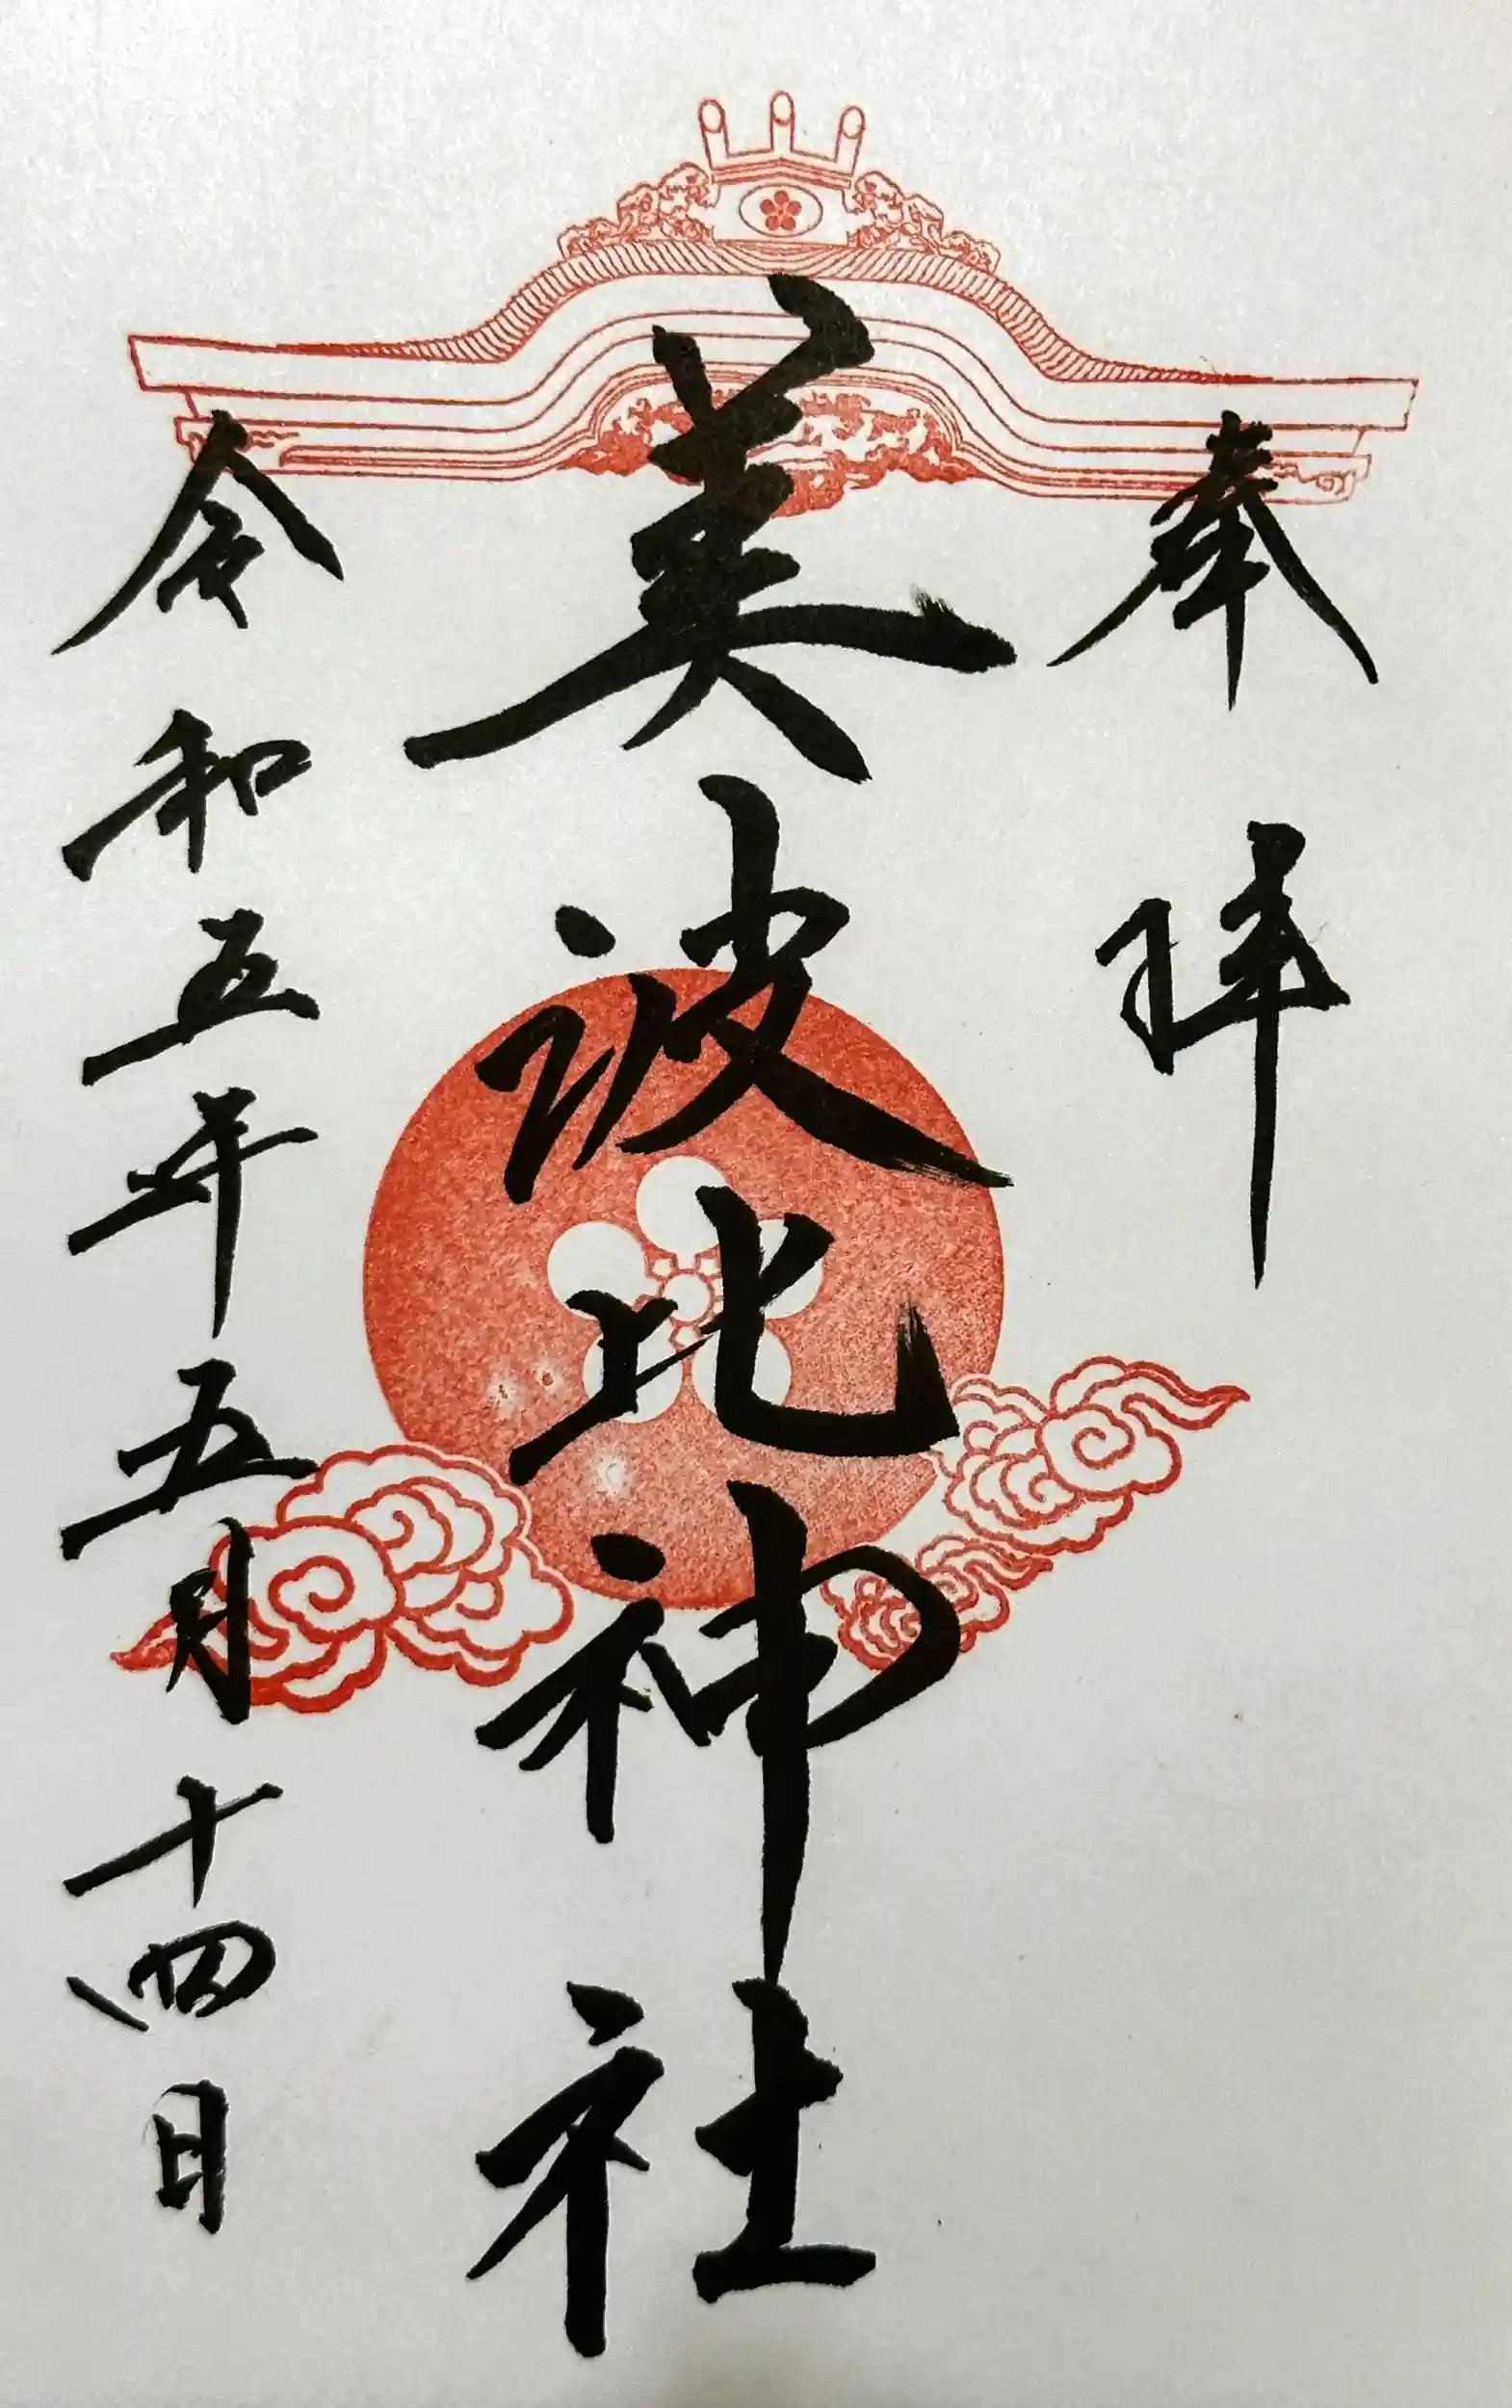 奉拝
美波比神社
令和五年五月十四日